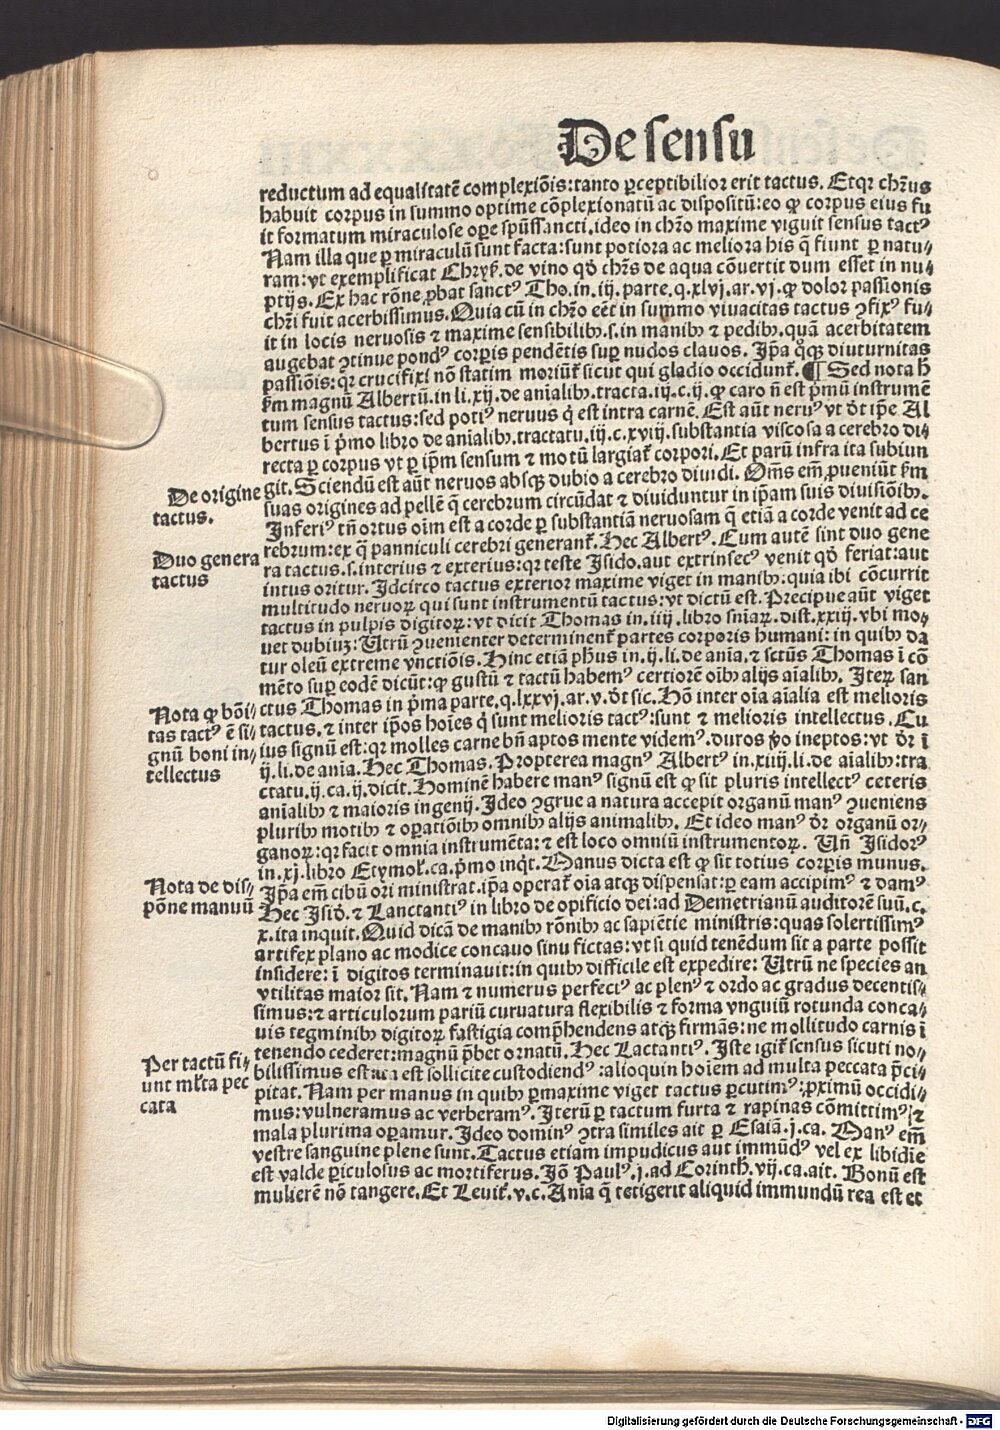 De sensu
reductum ad equalitatē complexiōis: tanto ꝑceptibilior erit tactus. Etqꝛ chr̄us
habuit corpus in summo optime cōplexionatū ac dispositū: eo ꝙ corpus eius fu
it formatum miraculose oꝑe spūssancti. ideo in chr̄o maxime viguit sensus tactꝰ
Nam illa que ꝑ miraculū sunt facta: sunt potiora ac meliora his q̄ fiunt ꝑ natu⸗
ram: vt exemplificat Chryſ. de vino qd̄ chr̄s de aqua cōuertit dum esset in nu⸗
ptijs. Ex hac rōne ꝓbat sanctꝰ Tho. in. iij. parte. q. xlvj. ar. vj. ꝙ dolor passionis
chr̄i fuit acerbissimus. Quia cū in chr̄o eēt in summo viuacitas tactus ꝯfixꝰ fu⸗
it in locis neruosis ⁊ maxime sensibilibꝫ. s. in manibꝫ ⁊ pedibꝫ. quā acerbitatem
augebat ꝯtinue pondꝰ corꝑis pendētis suꝑ nudos clauos. Ip̄a qͦꝫ diuturnitas
passiōis: qꝛ crucifixi nō statim moriunt᷑ sicut qui gladio occidunt᷑. ¶ Sed nota ħ
ẜm magnū Albertū in li. xij. de aīalibꝫ. tracta. iij. c. ij. ꝙ caro nō est pͥmū instrumē
tum sensus tactus: sed potiꝰ neruus qͥ est intra carnē. Est aūt neruꝰ vt dt̄ ip̄e Al
bertus ī pͥmo libro de aīalibꝫ. tractatu. iij. c. xviij. substantia viscosa a cerebro di⸗
recta ꝑ corpus vt ꝑ ip̄m sensum ⁊ motū largiat᷑ corpori. Et parū infra ita subiun
git. Sciendū est aūt neruos absqꝫ dubio a cerebro diuidi. Om̄s em̄ ꝓueniūt ẜm
suas origines ad pellē q̄ cerebrum circūdat ⁊ diuiduntur in ip̄am suis diuisiōibꝫ.
Inferiꝰ tn̄ ortus oīm est a corde ꝑ substantiā neruosam q̄ etiā a corde venit ad ce
rebrum: ex q̄ panniculi cerebri generant᷑. Hec Albertꝰ. Cum autē sint duo gene
ra tactus. s. interius ⁊ exterius: qꝛ teste Isido. aut extrinsecꝰ venit qd̄ feriat: aut
intus oritur. Idcirco tactus exterior maxime viget in manibꝫ: quia ibi cōcurrit
multitudo neruoꝝ qui sunt instrumentū tactus: vt dictū est. Precipue aūt viget
tactus in pulpis digitoꝝ: vt dicit Thomas in. iiij. libro sniaꝝ. dist. xxiij. vbi mo⸗
uet dubiuꝫ: Utrū ꝯuenienter determinent᷑ partes corporis humani: in quibꝫ da
tur oleū extreme vnctiōis. Hinc etiā ph̄us in. ij. li. de aīa. ⁊ sctūs Thomas ī cō
mēto suꝑ eodē dicūt: ꝙ gustū ⁊ tactū habemꝰ certiorē oībꝫ alijs aīalibꝫ. Iteꝝ san
ctus Thomas in pͥma parte. q. lxxvj. ar. v. dt̄ sic. Hō inter oīa aīalia est melioris
tactus. ⁊ inter ip̄os hoīes qͥ sunt melioris tactꝰ: sunt ⁊ melioris intellectus. Cu
ius signū est: qꝛ molles carne bn̄ aptos mente videmꝰ. duros ꝟo ineptos: vt dr̄ ī
ij. li. de aīa. Hec Thomas. Propterea magnꝰ Albertꝰ in. xiiij. li. de aīalibꝫ: tra
ctatu. ij. ca. ij. dicit. Hominē habere manꝰ signū est ꝙ sit pluris intellectꝰ ceteris
aīalibꝫ ⁊ maioris ingenij. Ideo ꝯgrue a natura accepit organū manꝰ ꝯueniens
pluribꝫ motibꝫ ⁊ oꝑatiōibꝫ omnibꝫ alijs animalibꝫ. Et ideo manꝰ dr̄ organū or⸗
ganoꝝ: qꝛ facit omnia instrumēta: ⁊ est loco omniū instrumentoꝝ. Un̄ Isidorꝰ
in. xj. libro Etymol᷑. ca. pͥmo inqt̄. Manus dicta est ꝙ sit totius corꝑis munus.
Ip̄a em̄ cibū ori ministrat. ip̄a operat᷑ oīa atqꝫ dispensat: ꝑ eam accipimꝰ ⁊ damꝰ
Hec Isid̄. ⁊ Lanctantiꝰ in libro de opificio dei: ad Demetrianū auditorē suū. c.
x. ita inquit. Quid dicā de manibꝫ rōnibꝫ ac sapiētie ministris: quas solertissimꝰ
artifex plano ac modice concauo sinu fictas: vt si quid tenēdum sit a parte possit
insidere: ī digitos terminauit: in quibꝫ difficile est expedire: Utrū ne species an
vtilitas maior sit. Nam ⁊ numerus perfectꝰ ac plenꝰ ⁊ ordo ac gradus decentis⸗
simus: ⁊ articulorum pariū curuatura flexibilis ⁊ forma vnguiū rotunda conca⸗
uis tegminibꝫ digitoꝝ fastigia compͥhendens atqꝫ firmās: ne mollitudo carnis ī
tenendo cederet: magnū pͥbet ornatū. Hec Lactantiꝰ. Iste igit᷑ sensus sicuti no⸗
bilissimus est ita est sollicite custodiendꝰ: alioquin hoīem ad multa peccata pͥci⸗
pitat. Nam per manus in quibꝫ ꝑmaxime viget tactus ꝑcutimꝰ: ꝓximū occidi⸗
mus: vulneramus ac verberamꝰ. Iterū ꝑ tactum furta ⁊ rapinas cōmittimꝰ: ⁊
mala plurima oꝑamur. Ideo dominꝰ ꝯtra similes ait ꝑ Esaiā. j. ca. Manꝰ em̄
vestre sanguine plene sunt. Tactus etiam impudicus aut immūdꝰ vel ex libidīe
est valde ꝑiculosus ac mortiferus. Iō Paulꝰ. j. ad Corinth̄. vij. ca. ait. Bonū est
mulierē nō tangere. Et Leuit᷑. v. c. Aīa q̄ tetigerit aliquid immundū rea est et
De origine
tactus.
Duo genera
tactus
Nota ꝙ bōi⸗
tas tactꝰ ē si⸗
gnū boni in⸗
tellectus
Nota de dis⸗
pōne manuū
Per tactū fi⸗
unt ml᷑ta pec
cata
Digitalisierung gefördert durch die Deutsche Forschungsgemeinschaft - DFG